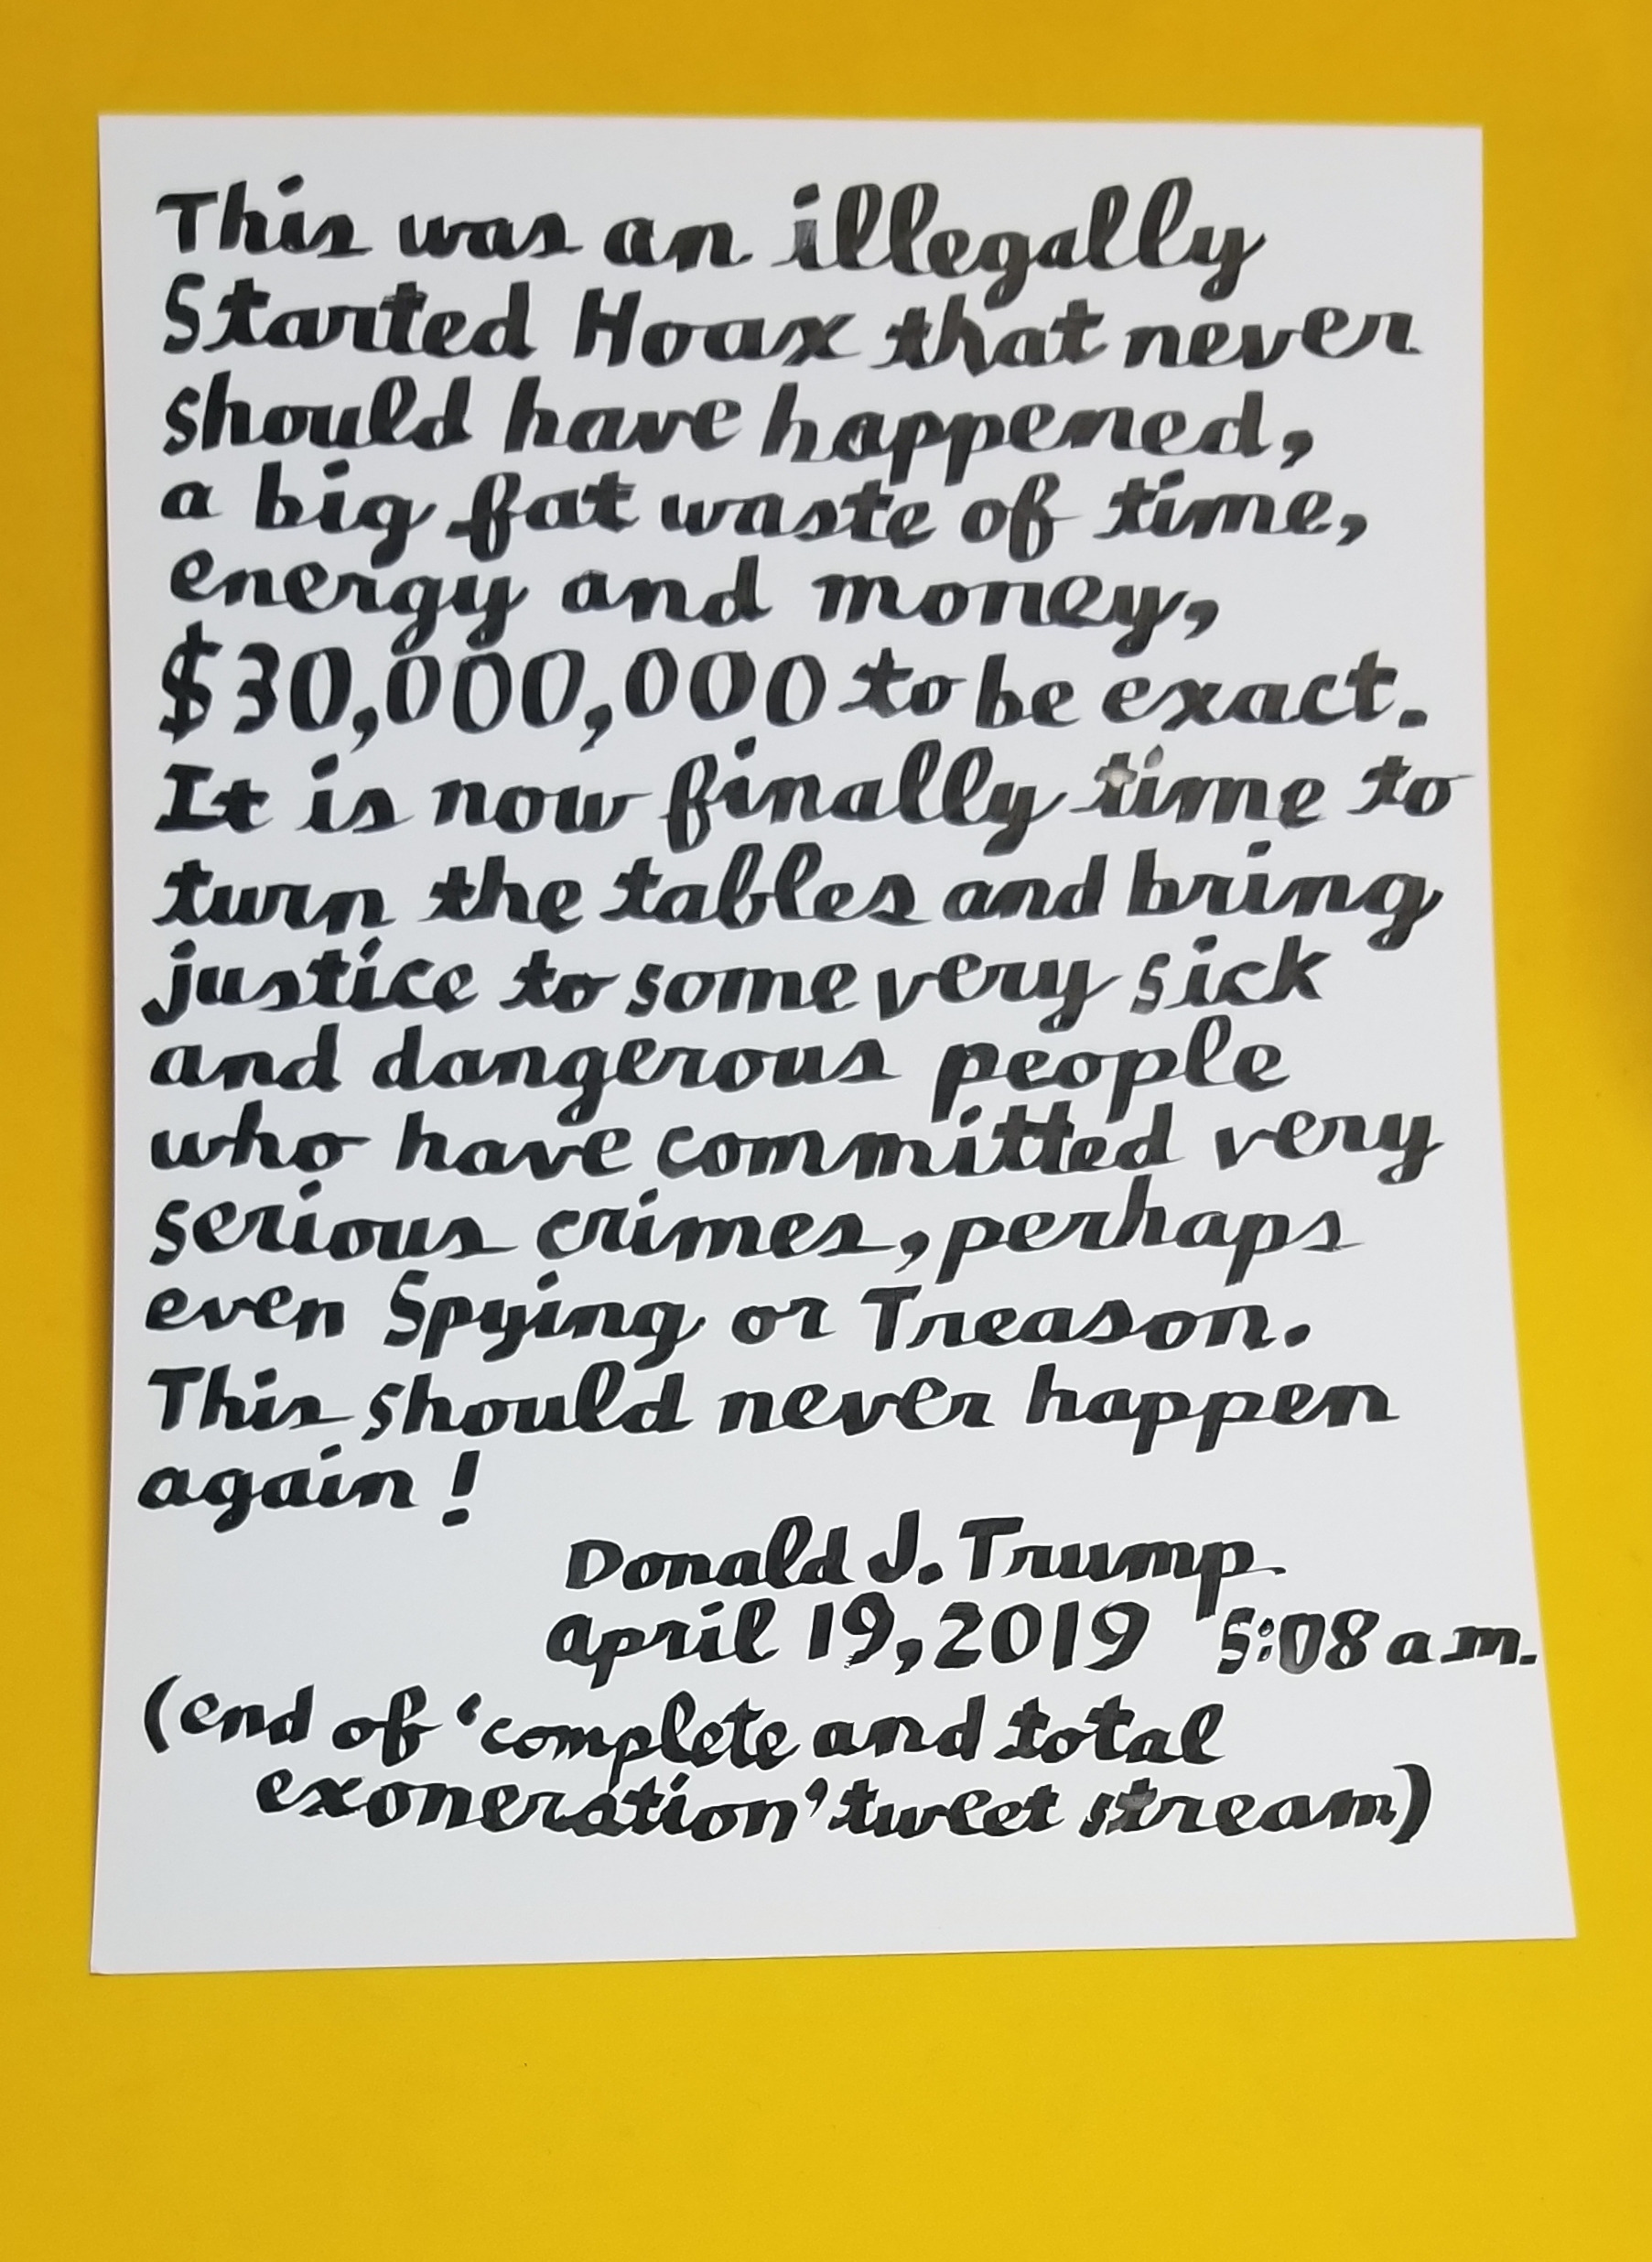 This was an illegally
Started Hoax that never
should have happened,
a big fat waste of time,
energy and money,
$30,000,000 to be exact.
It is now finally time to
turn the tables and bring
justice to some very sick
and dangerous people
who have committed very
serious crimes, perhaps
even Spying or Treason.
This should never happen
again!
Donald J. Trump
april 19, 2019 5:08 a.m.
(end of 'complete and total
exoneration' tweet stream)